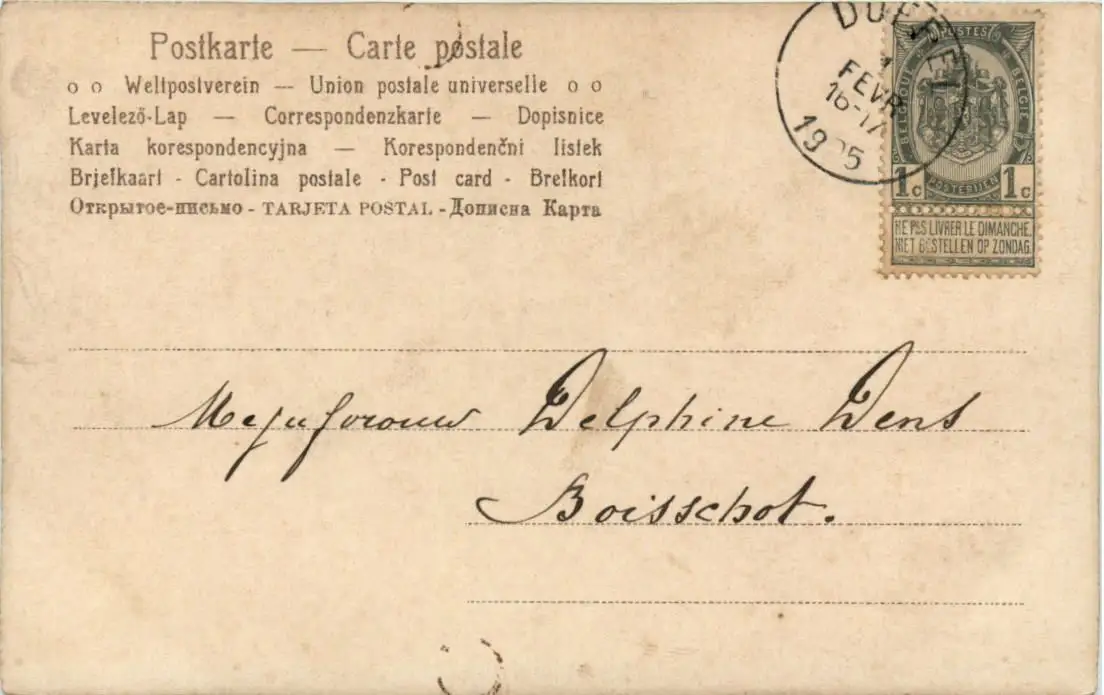 Postkarte — Carte postale
o o Weltpostverein — Union postale universelle o o
Levelező-Lap — Correspondenzkarte — Dopisnice
Karta korespondencyjna — Korespondenčni listek
Brjefkaart - Cartolina postale - Post card - Brefkort
Открытое-письмо - TARJETA POSTAL - Дописна Карта
DUFFEL
1
FEVR
16-17
POSTES
BELGIQUE BELGIË
POSTERIJEN
1c 1c
NE PAS LIVRER LE DIMANCHE.
NIET BESTELLEN OP ZONDAG
Mejufvrouw Delphine Wens
Boisschot.